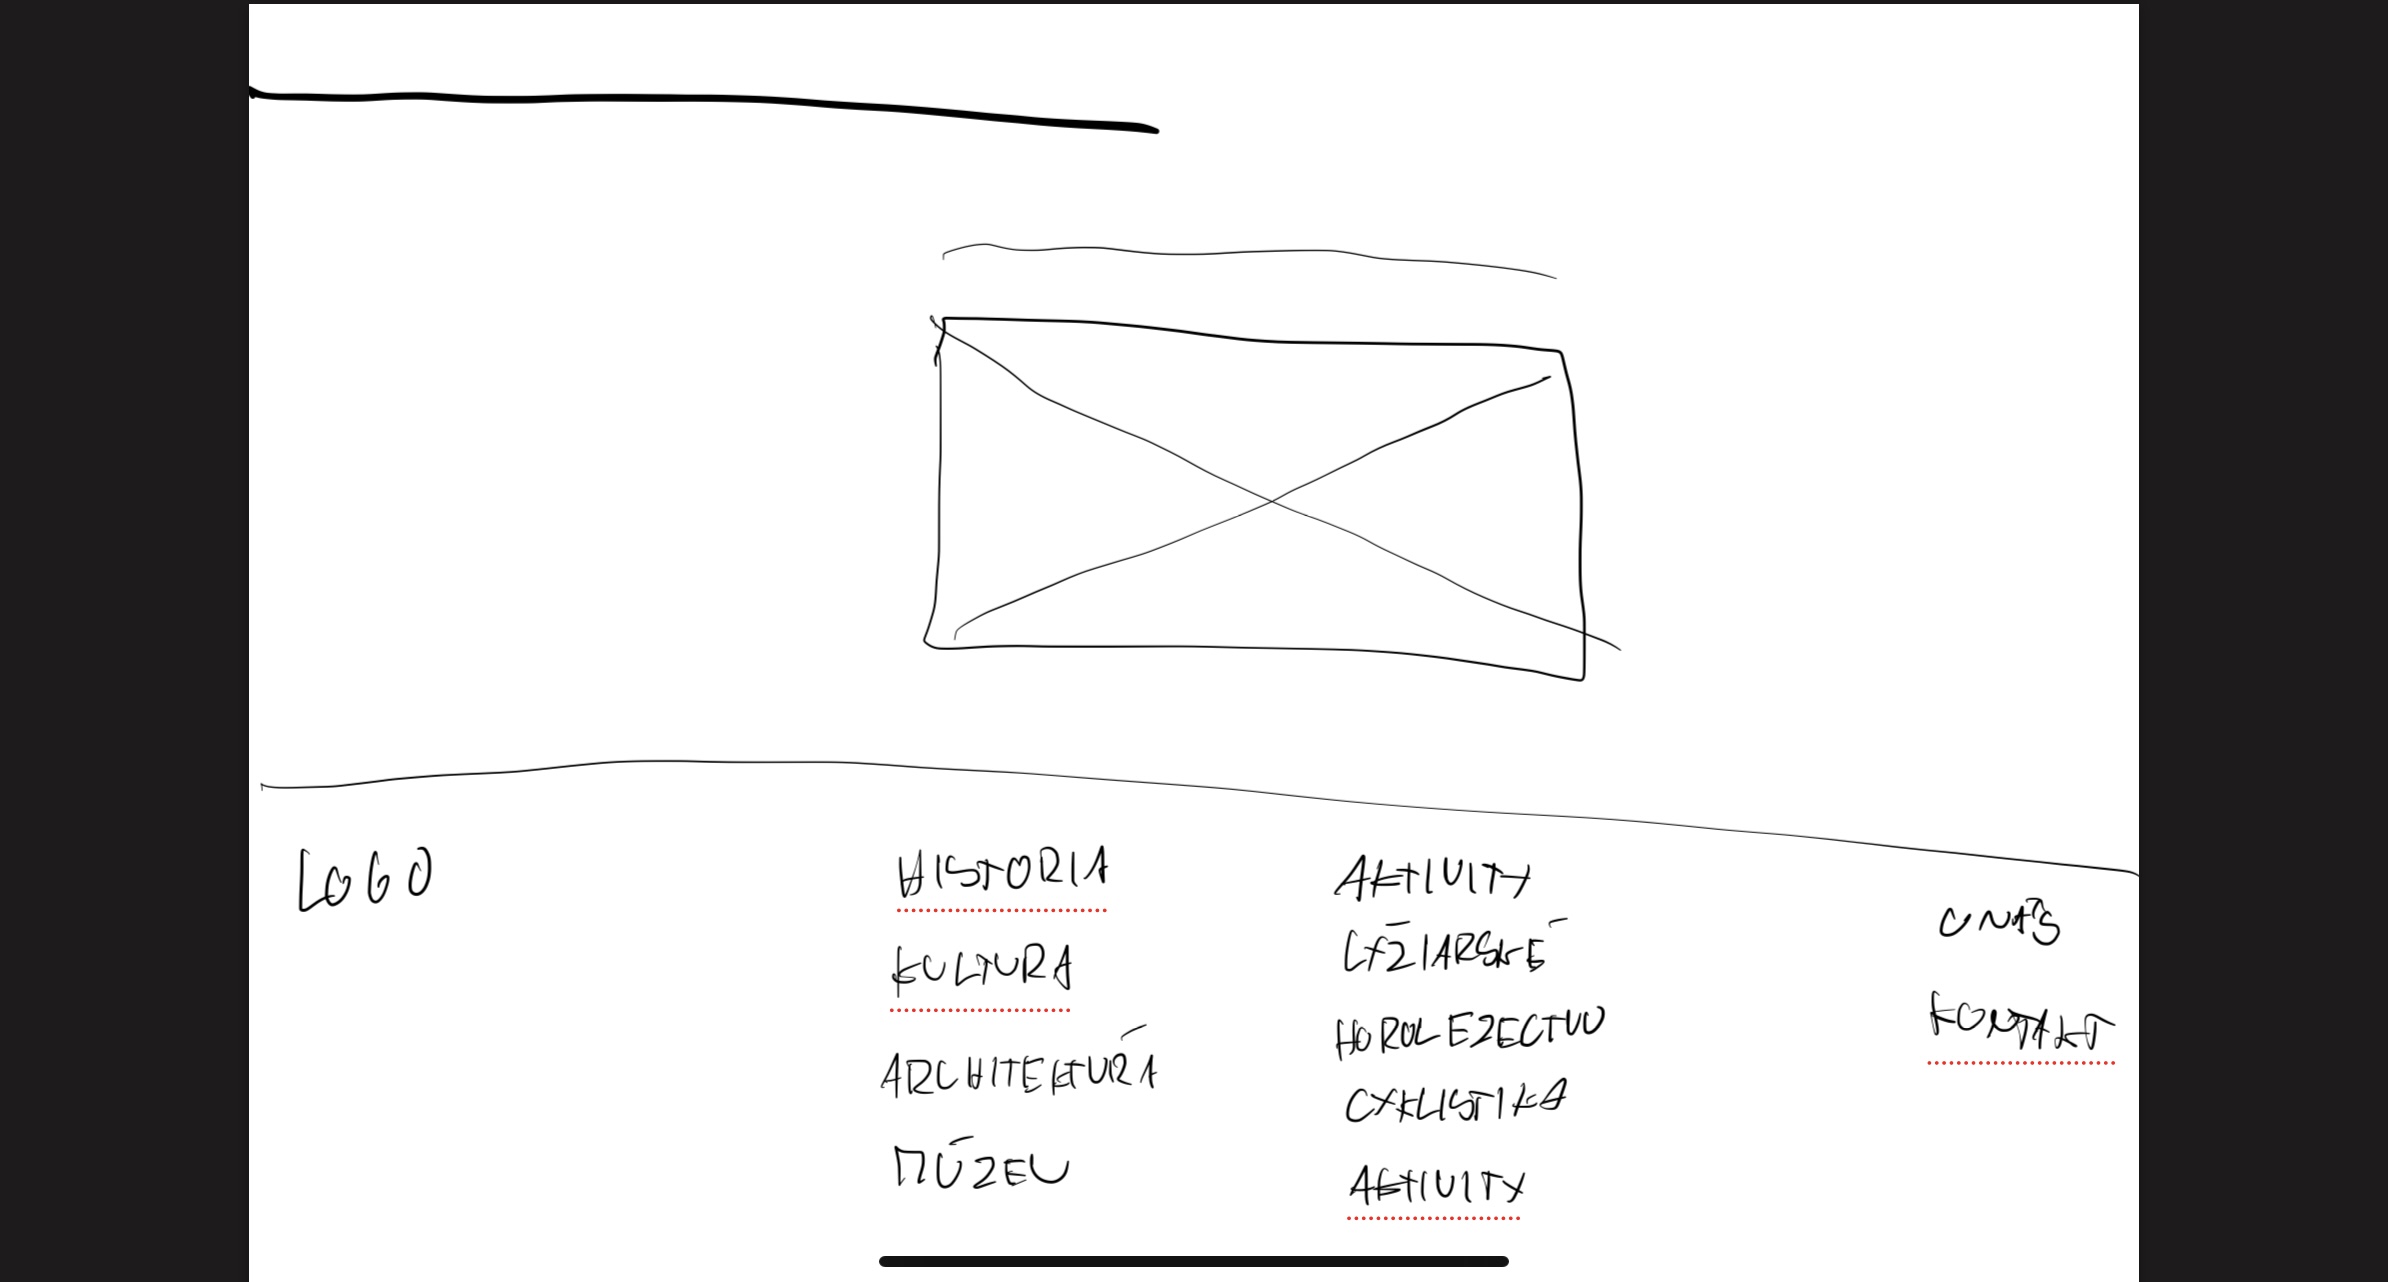 LOGO
HISTORIA
KULTURA
ARCHITEKTÚRA
MÚZEU
AKTIVITY
LYŽIARSKÉ
HOROLEZECTVO
CYKLISTIKA
AKTIVITY
O NÁS
KONTAKT